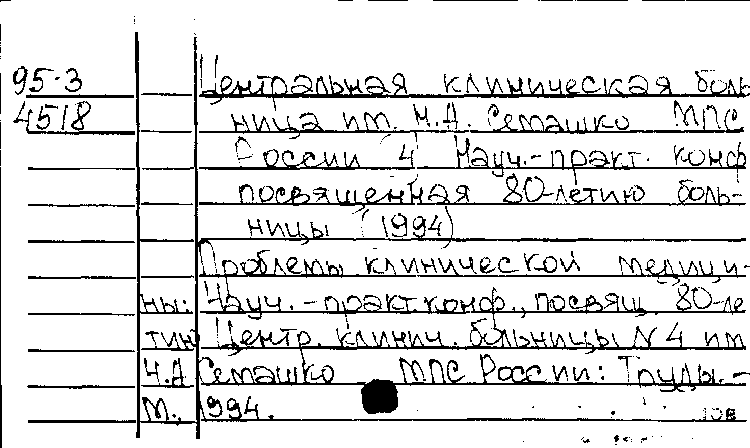 95-3 Центральная клиническая боль
4518 ница им. Н.А. Семашко МПС
России (4. Науч.-практ. конф
посвященная 80-летию боль-
ницы (1994)
Проблемы клинической медици-
ны: Науч.-практ. конф., посвящ. 80-ле
тию Центр. клинич. больницы N 4 им
Н.А Семашко МПС России: Труды.-
М., 1994.